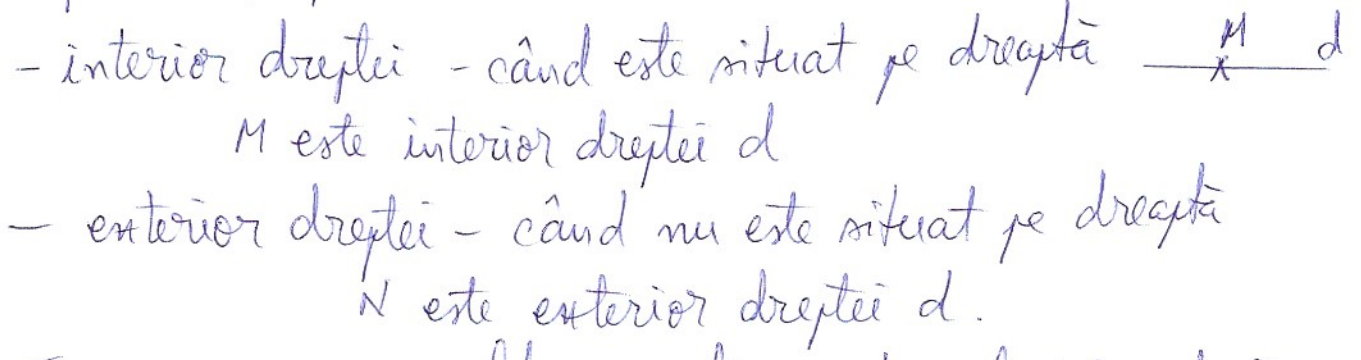 - interior dreptei - când este situat pe dreaptă M d
M este interior dreptei d
- exterior dreptei - când nu este situat pe dreaptă
N este exterior dreptei d.